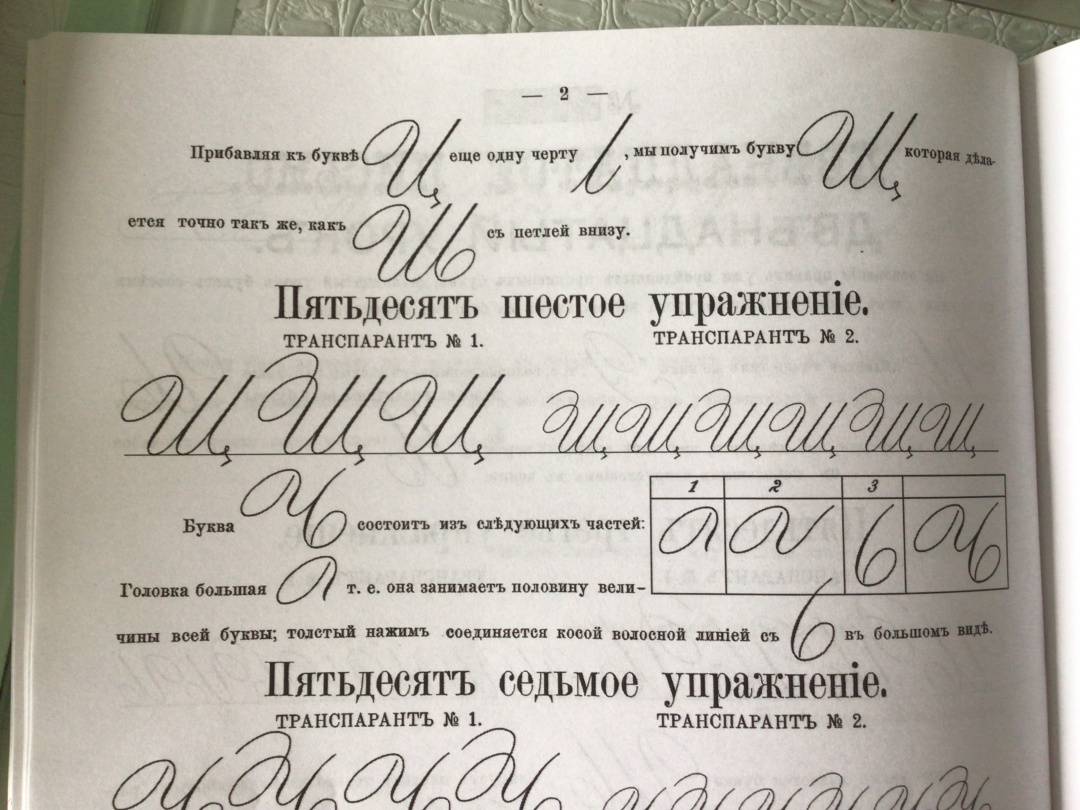 — 2 —
Прибавляя къ буквѣ Ц еще одну черту , мы получимъ букву Щ которая дѣла-
ется точно такъ же, какъ Ш съ петлей внизу.
Пятьдесятъ шестое упражненіе.
ТРАНСПАРАНТЪ № 1. ТРАНСПАРАНТЪ № 2.
Щ Щ Щ Щ Щ Щ Щ Щ Щ
1 2 3
Буква Ч состоитъ изъ слѣдующихъ частей:
Ч
Головка большая т. е. она занимаетъ половину вели-
чины всей буквы; толстый нажимъ соединяется косой волосной линіей съ въ большомъ видѣ.
Пятьдесятъ седьмое упражненіе.
ТРАНСПАРАНТЪ № 1. ТРАНСПАРАНТЪ № 2.
Ч Ч Ч Ч